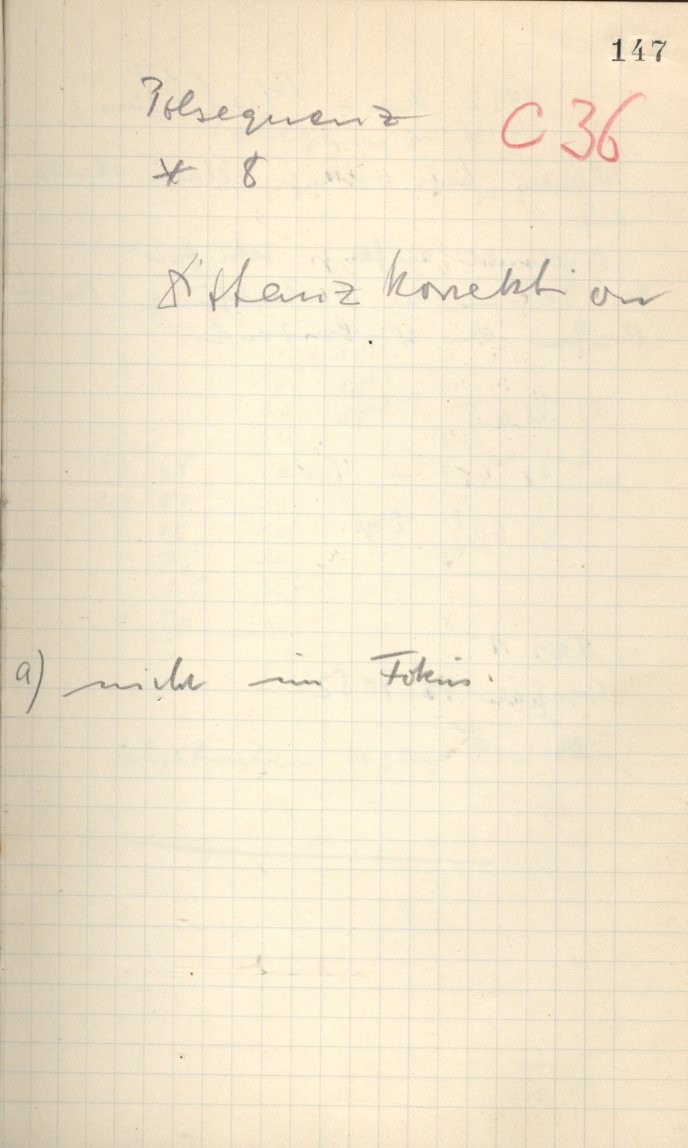 147
Polsequenz
C 36
* 8
Distanzkorrektion
a) nicht im Fokus.